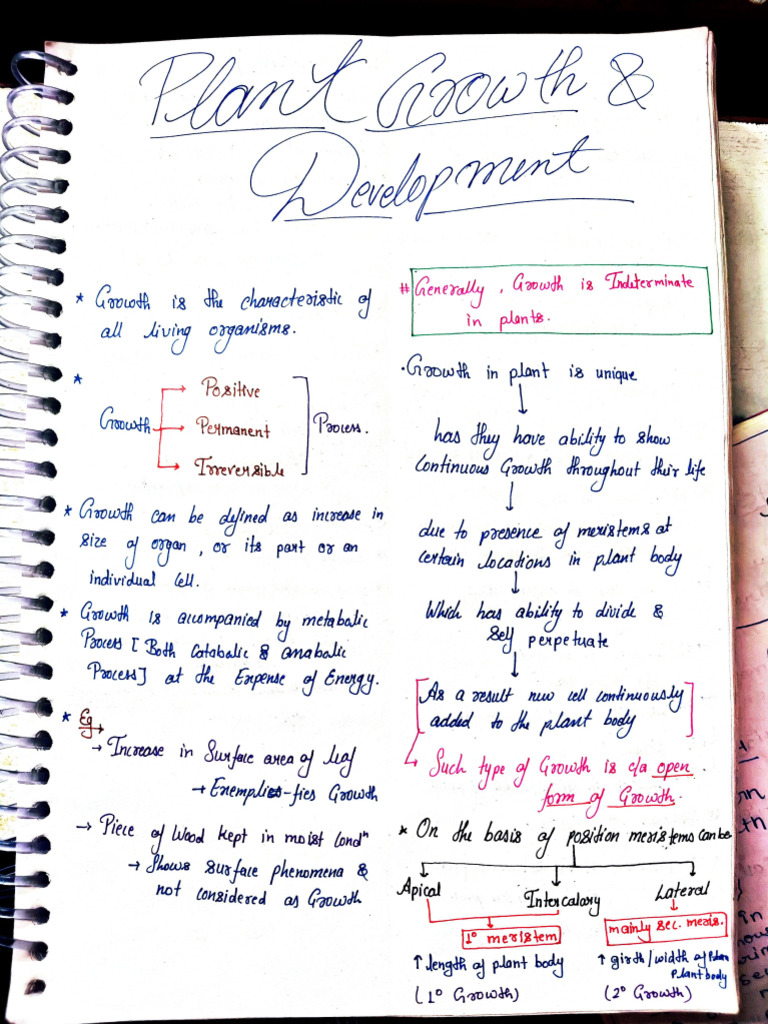 Plant Growth &
Development
* Growth is the characteristic of
all living organisms.
*
Positive
Growth
Permanent
Process.
Irreversible
* Growth can be defined as increase in
size of organ, or its part or an
individual cell.
* Growth is accompanied by metabolic
Process [Both Catabolic & anabolic
Process] at the Expense of Energy.
* Eg
→ Increase in Surface area of leaf
→ Exemplies-fies Growth
→ Piece of Wood kept in moist condⁿ
→ Shows surface phenomena &
not considered as Growth
# Generally, Growth is Indeterminate
in plants.
• Growth in plant is unique
↓
has they have ability to show
Continuous Growth throughout their life
↓
due to presence of meristems at
certain locations in plant body
↓
Which has ability to divide &
self perpetuate
↓
[As a result new cell continuously
added to the plant body]
↳ Such type of Growth is c/a open
form of Growth.
* On the basis of position meristems can be
Apical
Intercalary
Lateral
1° meristem
mainly sec. meris.
↑ length of plant body
(1° Growth)
↑ girth/width of
plant body
(2° Growth)